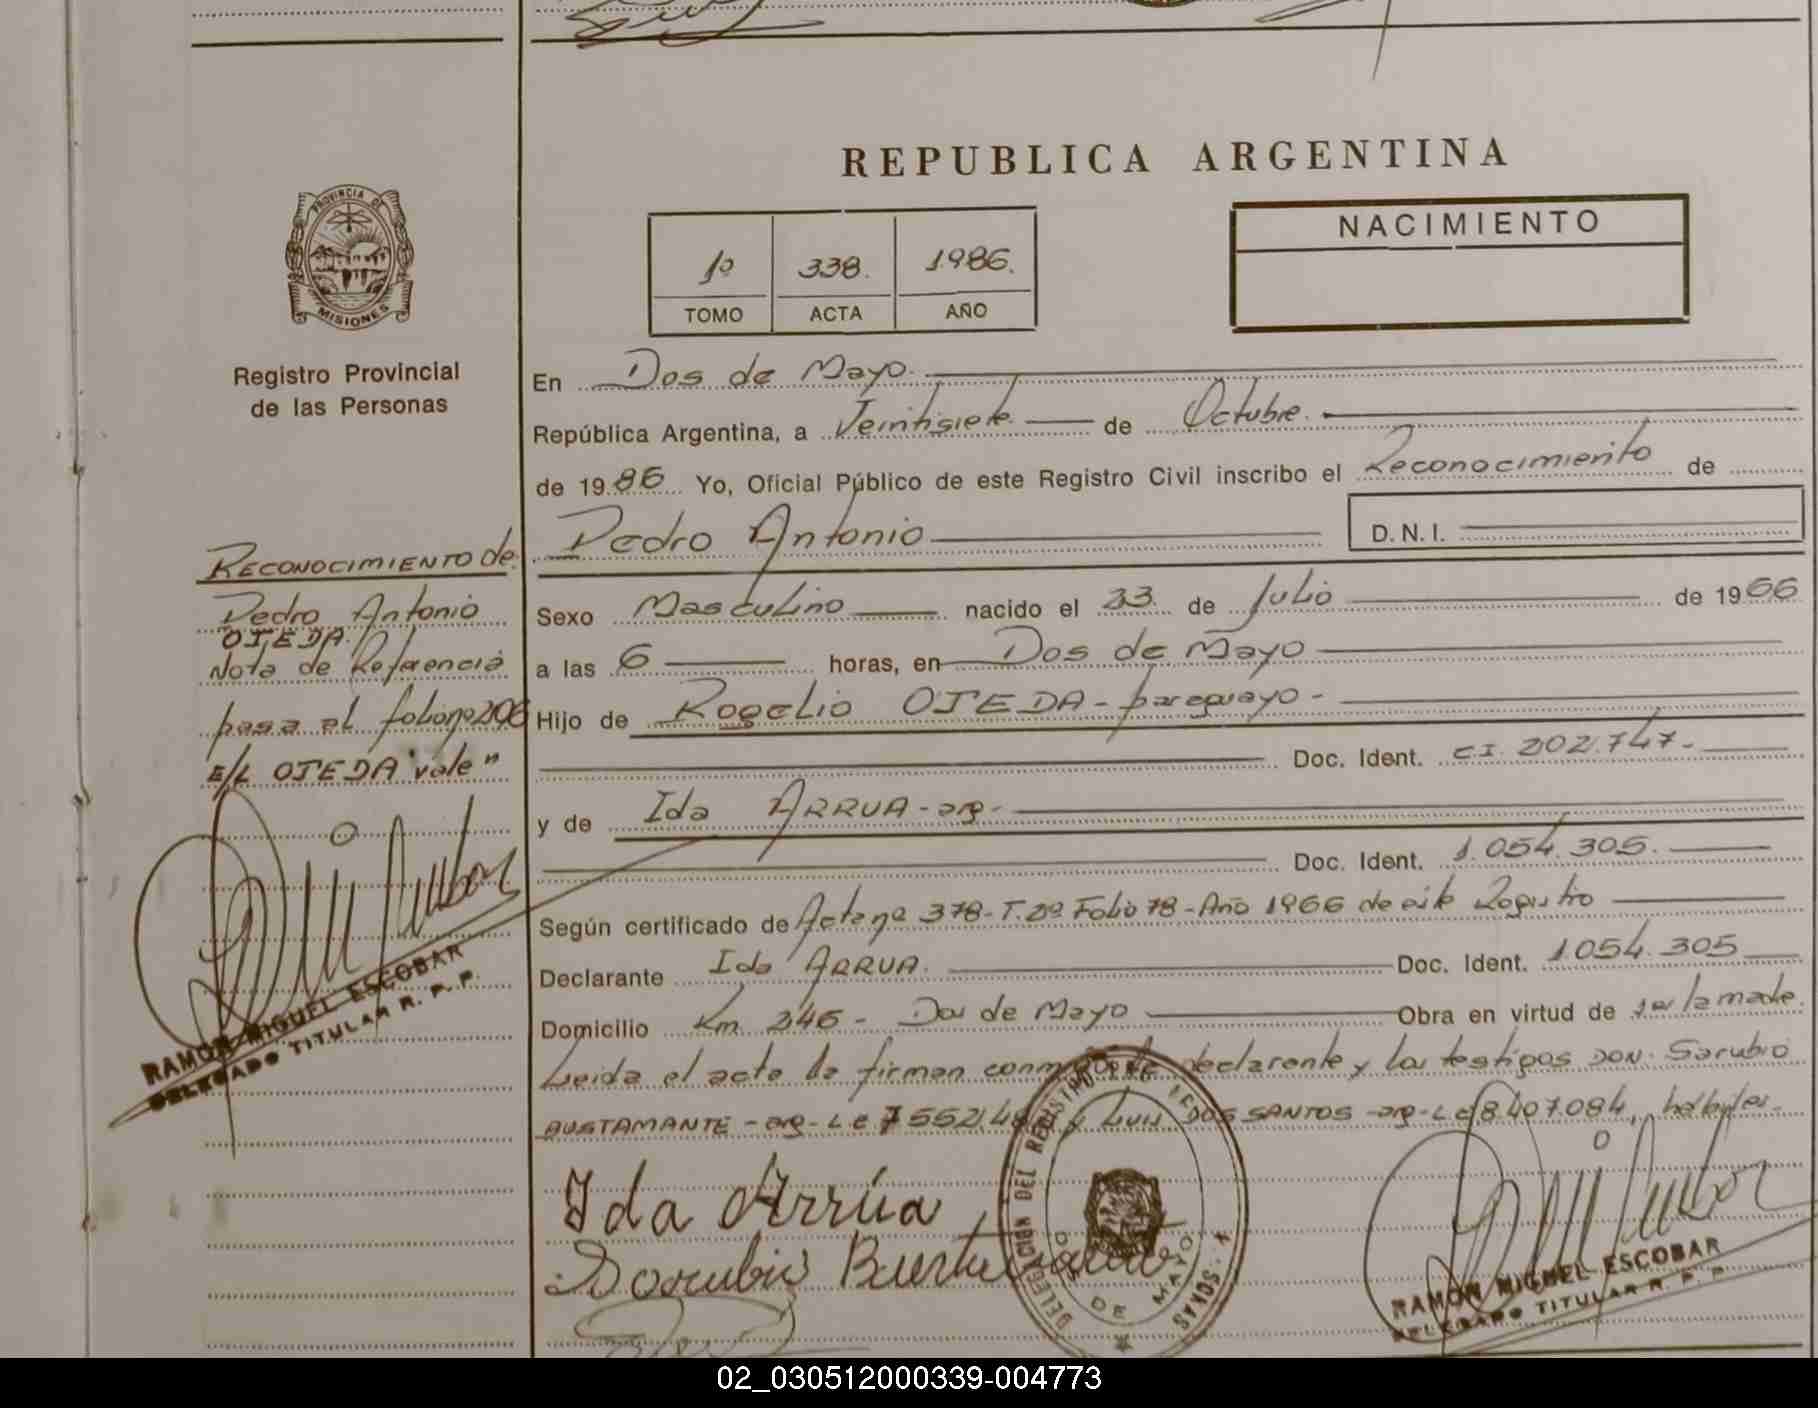 REPUBLICA ARGENTINA
PROVINCIA DE
MISIONES
Registro Provincial
de las Personas
1º 338. 1986.
TOMO ACTA AÑO
NACIMIENTO
En Dos de Mayo.
República Argentina, a Veintisiete de Octubre.
de 1986 Yo, Oficial Público de este Registro Civil inscribo el Reconocimiento de
Pedro Antonio D.N.I.
Sexo Masculino nacido el 23 de Julio de 1966
a las 6 horas, en Dos de Mayo
Hijo de Rogelio OJEDA - paraguayo -
Doc. Ident. CI. 202.747-
y de Ida ARRUA - arg -
Doc. Ident. 1.054.305.
Según certificado de Acta nº 378 - T. 2º Folio 78 - Año 1966 de este Registro
Declarante Ida ARRUA. Doc. Ident. 1.054.305
Domicilio Km 246 - Dos de Mayo Obra en virtud de ser la madre.
Leida el acta la firman conmigo la declarante y los testigos DON. Sarubio
BUSTAMANTE - arg - Le 7552.48 y Luis DOS SANTOS - arg - Le 8.407.084, hábiles.
Ida Arrúa
Sorubio Bustamante
DELEGACIÓN DEL REGISTRO
DOS DE MAYO
RAMON MIGUEL ESCOBAR
DELEGADO TITULAR R. P. P.
RECONOCIMIENTO de.
Pedro Antonio
OJEDA.
Nota de Referencia
pasa al folio nº 206
E/L OJEDA vale"
RAMON MIGUEL ESCOBAR
DELEGADO TITULAR R. P. P.
02_030512000339-004773